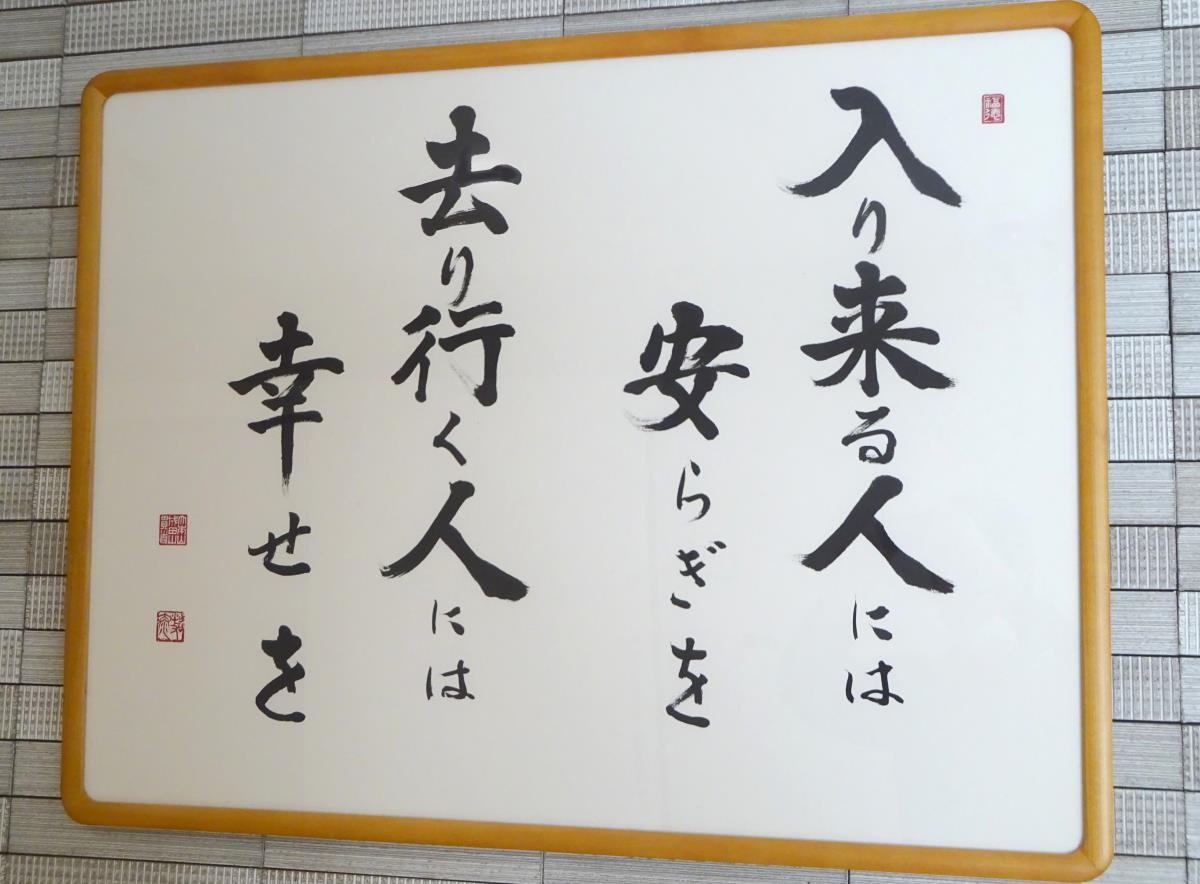 入り来る人には
安らぎを
去り行く人には
幸せを